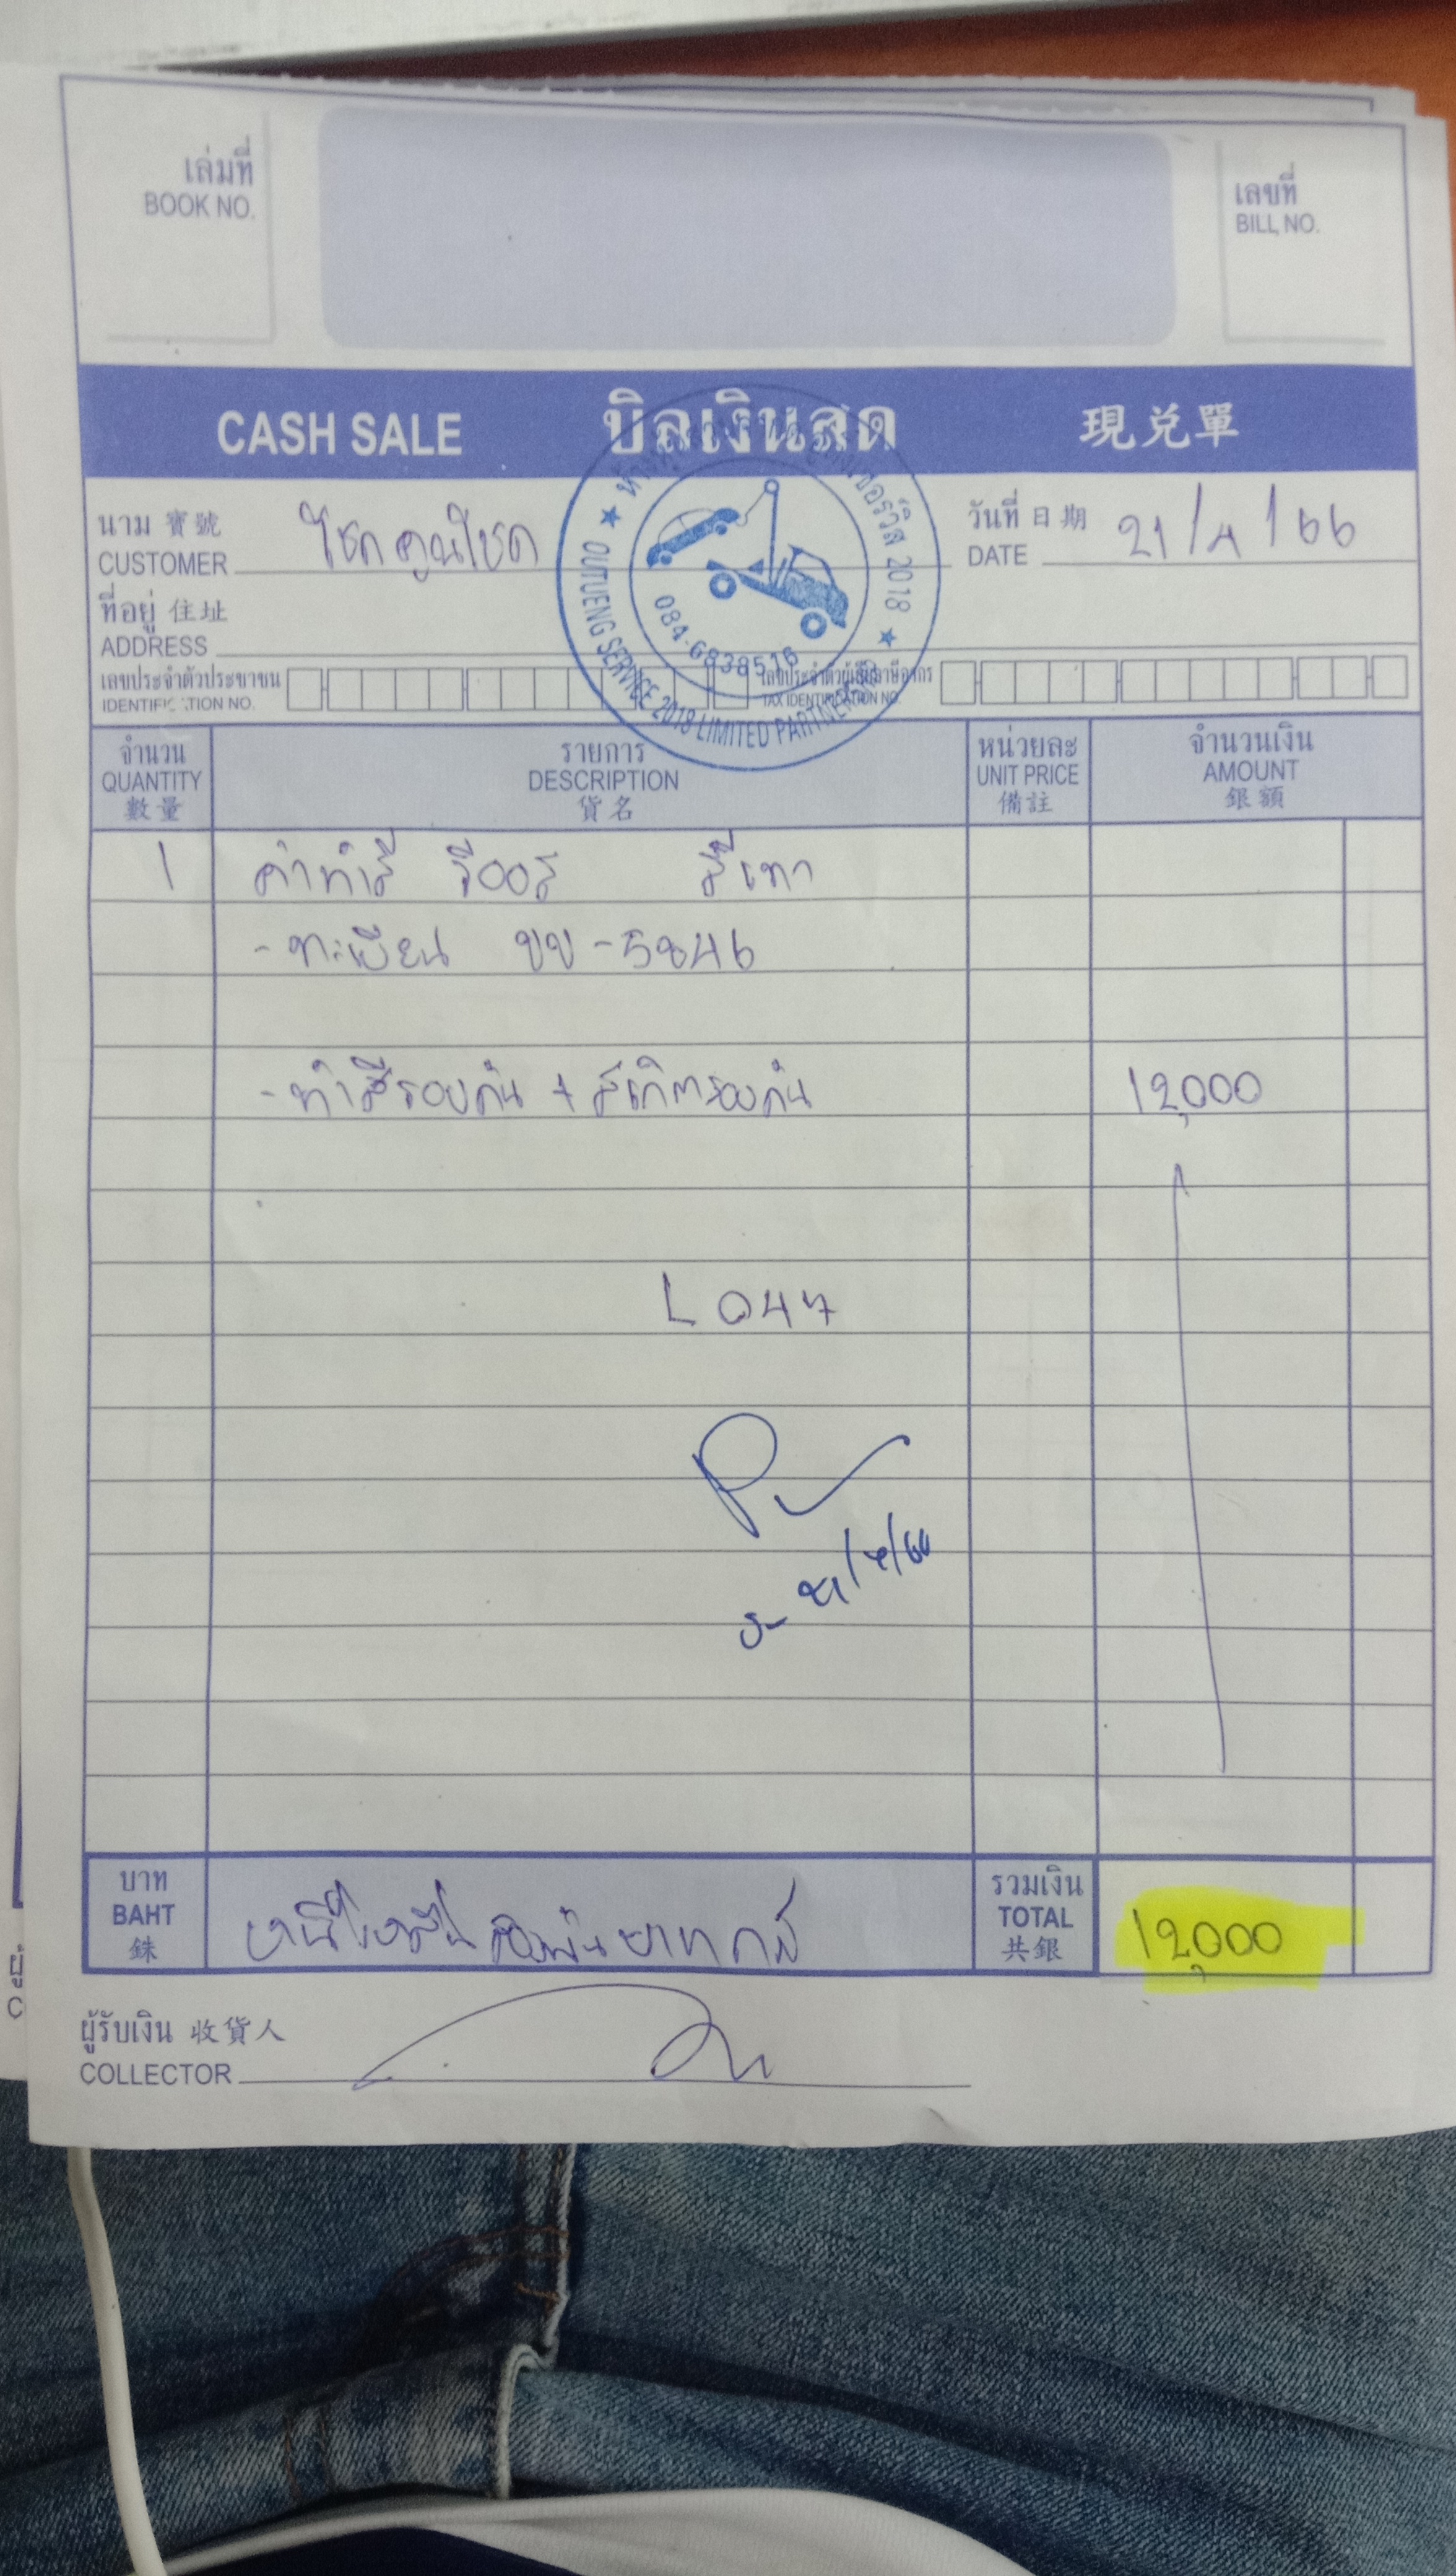 เล่มที่
BOOK NO.
เลขที่
BILL NO.
CASH SALE บิลเงินสด 現兑單
นาม 寶號
CUSTOMER โชคคูณโชค
วันที่ 日期
DATE 21/4/66
ที่อยู่ 住址
ADDRESS
เลขประจำตัวประชาชน
IDENTIFICATION NO.
เลขประจำตัวผู้เสียภาษีอากร
TAX IDENTIFICATION NO.
เซอร์วิส 2018
OUTUENG SERVICE 2018 LIMITED PARTNERSHIP
084-6838516
จำนวน
QUANTITY
數量
รายการ
DESCRIPTION
貨名
หน่วยละ
UNIT PRICE
備註
จำนวนเงิน
AMOUNT
銀額
1 ค่าทำสี วีออส สีเทา
- ทะเบียน ขข-5846
- ทำสีรอบคัน + สเกิตรอบคัน 12,000
L047
21/4/66
บาท
BAHT
銖
หนึ่งหมื่นสองพันบาทถ้วน
รวมเงิน
TOTAL
共銀
12,000
ผู้รับเงิน 收貨人
COLLECTOR